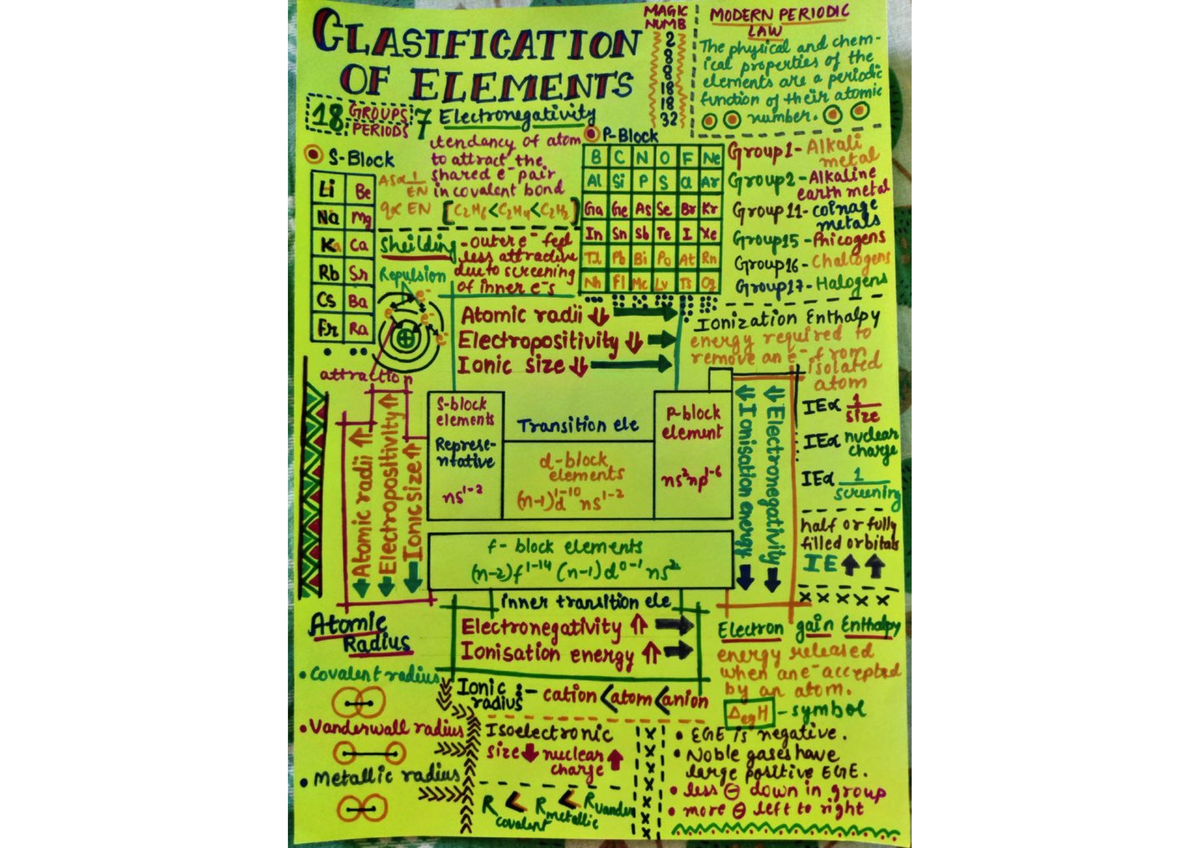 CLASIFICATION
OF ELEMENTS
MAGIC
NUMB
2
8
8
18
18
32
MODERN PERIODIC
LAW
The physical and chem-
ical properties of the
elements are a periodic
function of their atomic
number.
18 GROUPS 7
PERIODS
Electronegativity
tendancy of atom
to attract the
shared e⁻ pair
in covalent bond
AS∝ 1/EN
q∝ EN [C₂H₆<C₂H₄<C₂H₂]
S-Block
Li Be
Na Mg
K Ca
Rb Sr
Cs Ba
Fr Ra
P-Block
B C N O F Ne
Al Si P S Cl Ar
Ga Ge As Se Br Kr
In Sn Sb Te I Xe
Tl Pb Bi Po At Rn
Nh Fl Mc Lv Ts Og
Group1- Alkali
metal
Group2- Alkaline
earth metal
Group 11- coinage
metals
Group15- Phicogens
Group16- Chalcogens
Group17- Halogens
Sheilding -outer e⁻ feel
less attractive
due to screening
of inner e⁻s
Repulsion
e⁻
e⁻
e⁻
attraction
Atomic radii ⇓
Electropositivity ⇓
Ionic size ⇓
Ionization Enthalpy
energy required to
remove an e⁻ from
isolated
atom
IE∝ 1/size
IE∝ nuclear
charge
IE∝ 1/screening
half or fully
filled orbitals
IE
Atomic radii ⇑
Electropositivity ⇑
Ionic size ⇑
S-block
elements
Represe-
ntative
ns¹⁻²
Transition ele
d-block
elements
(n-1)d¹⁻¹⁰ ns¹⁻²
P-block
element
ns²np¹⁻⁶
⇓ Ionisation energy
⇓ Electronegativity
f- block elements
(n-2)f¹⁻¹⁴ (n-1)d⁰⁻¹ ns²
inner transition ele
Electronegativity ⇑
Ionisation energy ⇑
Atomic
Radius
• Covalent radius
• Vanderwall radius
• Metallic radius
Ionic :- cation < atom < anion
radius
Isoelectronic
size nuclear
charge
R covalent < R metallic < R vander
Electron gain Enthalpy
energy released
when an e⁻ accepted
by an atom.
Δ eg H - symbol
• EGE is negative.
• Noble gases have
large positive EGE.
• less ⊖ down in group
• more ⊖ left to right